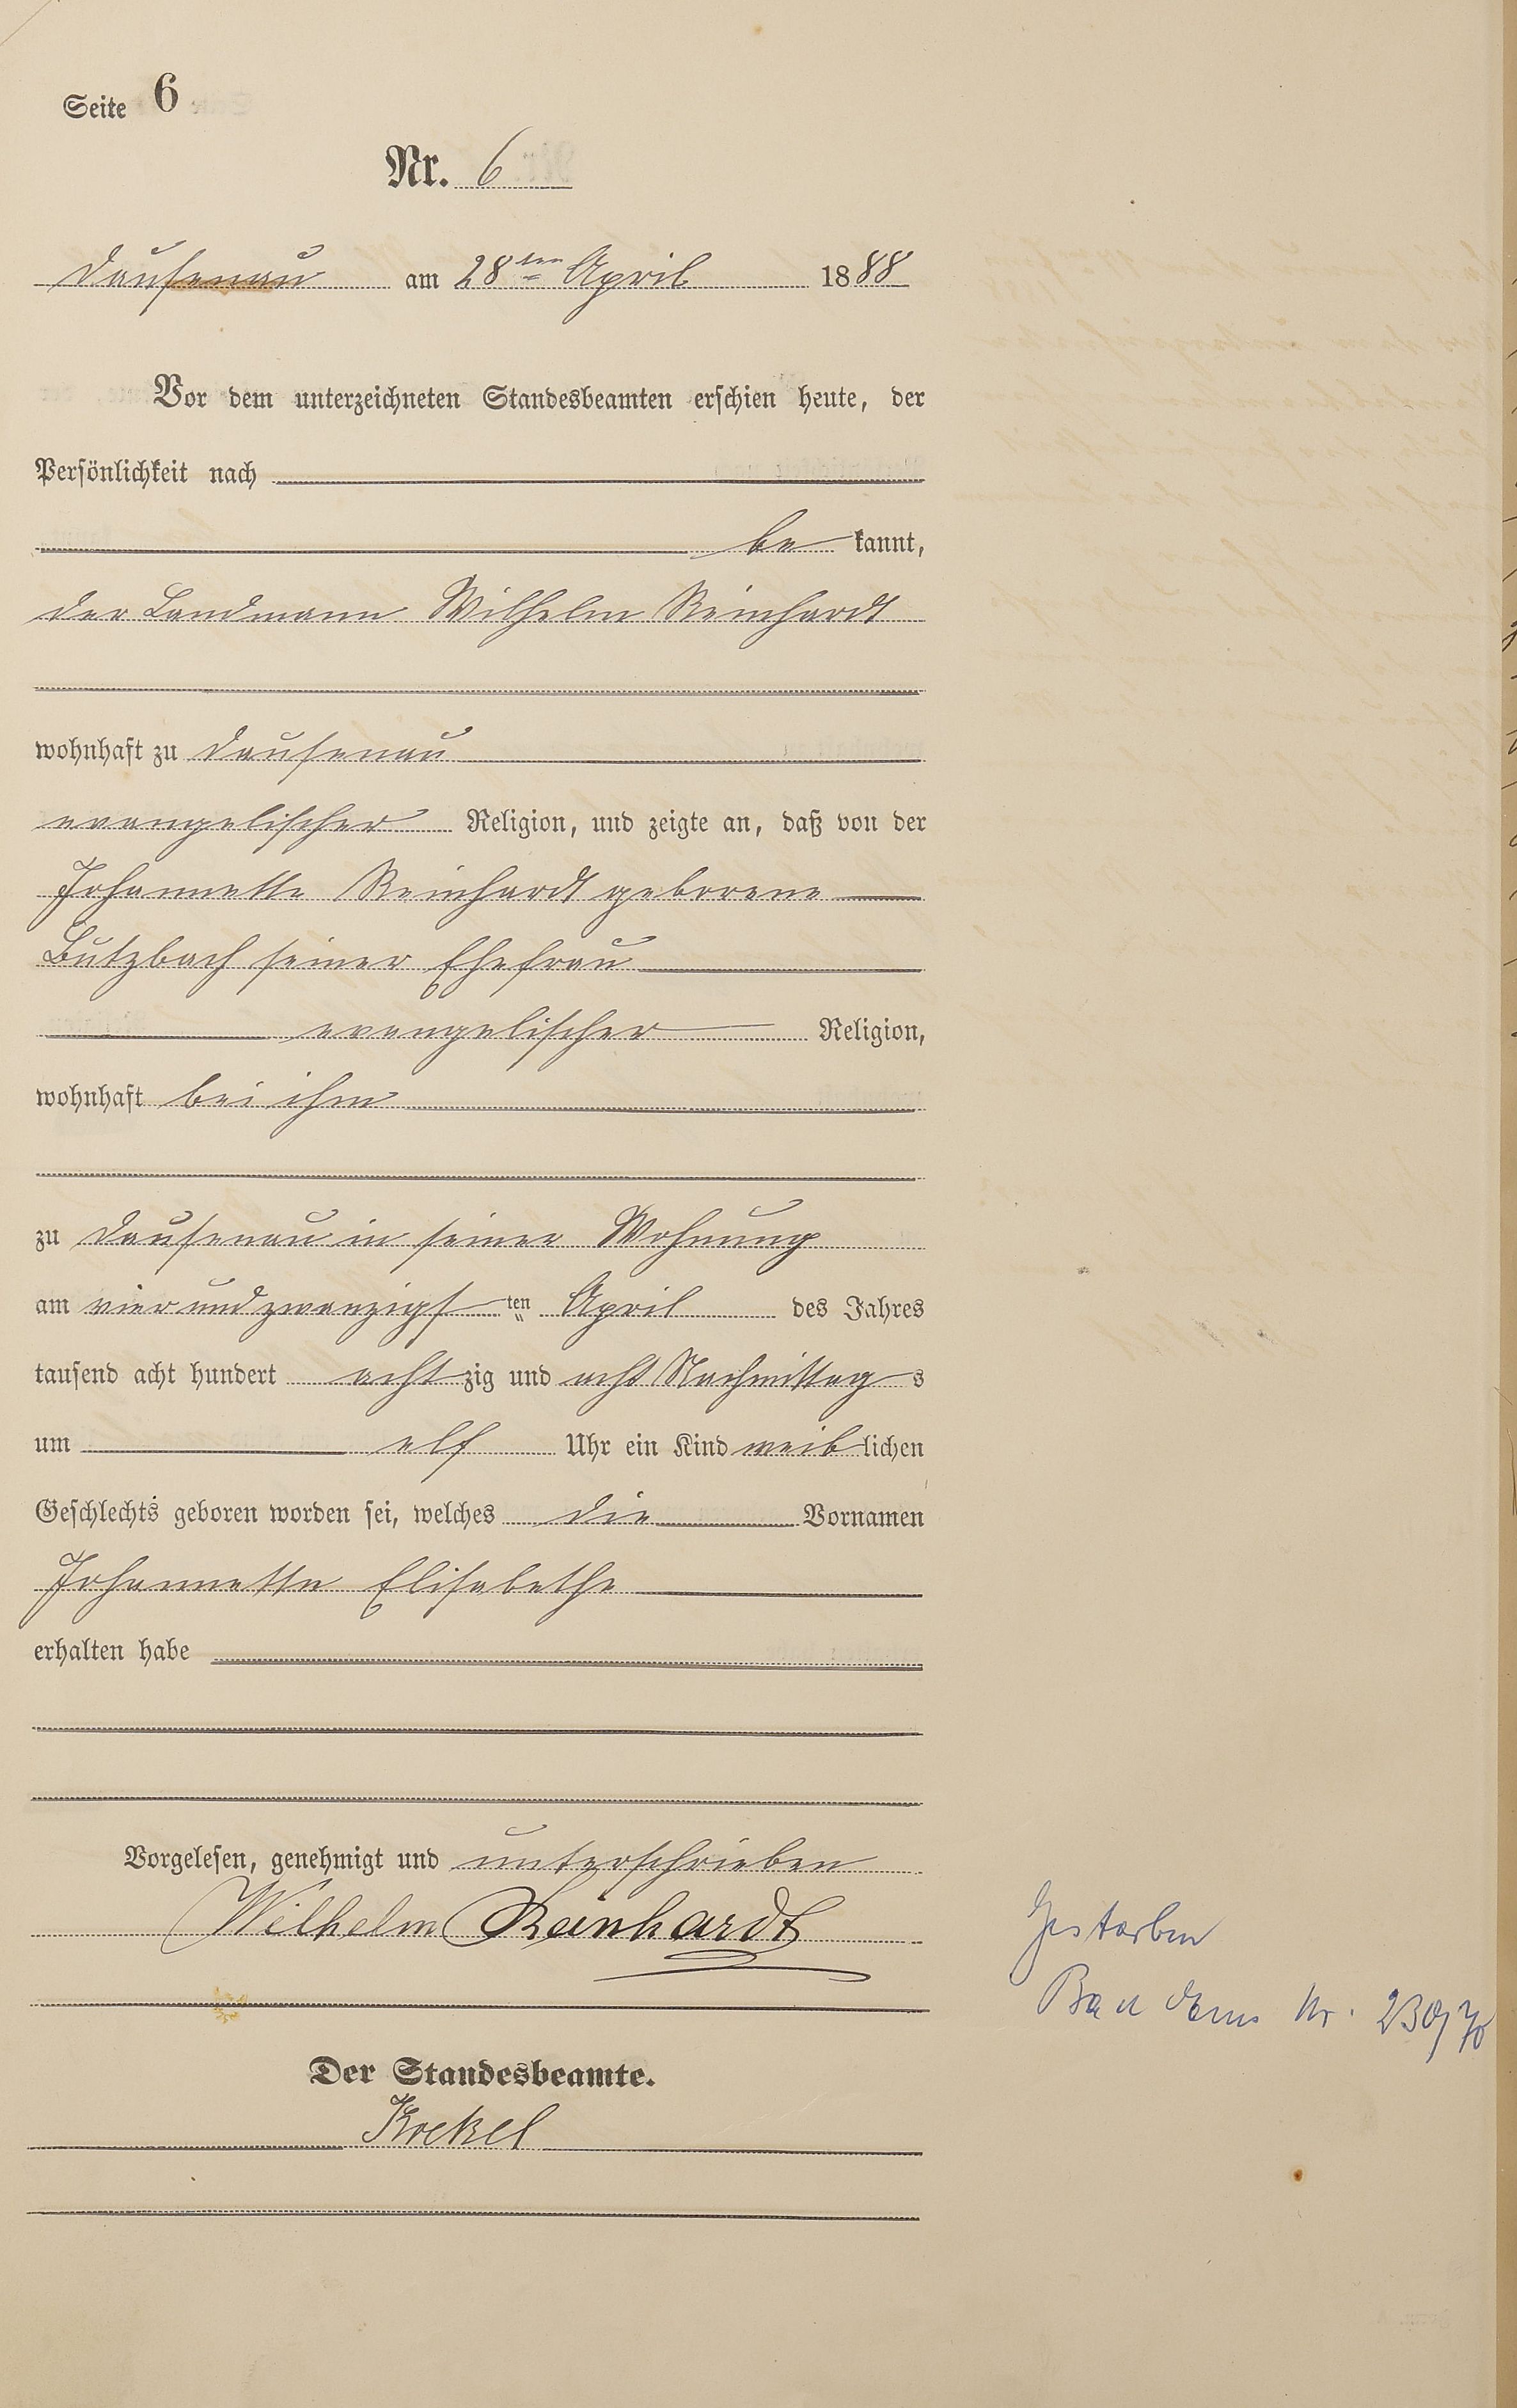 Seite 6
Nr. 6
Dausenau am 28ten April 1888
Vor dem unterzeichneten Standesbeamten erschien heute, der
Persönlichkeit nach
be kannt,
der Landmann Wilhelm Reinhardt
wohnhaft zu Dausenau
evangelischer Religion, und zeigte an, daß von der
Johannette Reinhardt geborene
Butzbach seiner Ehefrau
evangelischer Religion,
wohnhaft bei ihm
zu Dausenau in seiner Wohnung
am vier und zwanzigsten April des Jahres
tausend acht hundert achtzig und acht Nachmittags
um elf Uhr ein Kind weiblichen
Geschlechts geboren worden sei, welches die Vornamen
Johannette Elisabethe
erhalten habe
Vorgelesen, genehmigt und unterschrieben
Wilhelm Reinhardt
Der Standesbeamte.
Gestorben
Bad Ems Nr. 230/70